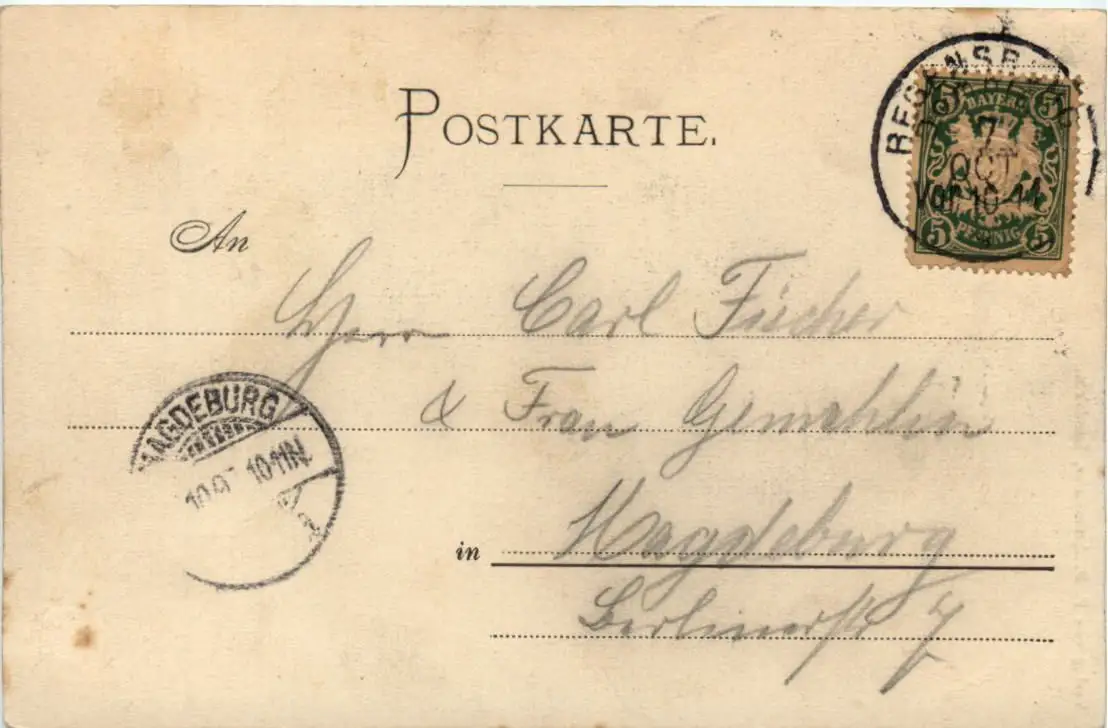 POSTKARTE.
REGENSBURG
7
OCT
Vor 10-11
5 BAYERN 5
5 PFENNIG 5
An
Herrn Carl Fischer
& Frau Gemahlin
MAGDEBURG
10-11N.
in Magdeburg
Berlinerstr 7